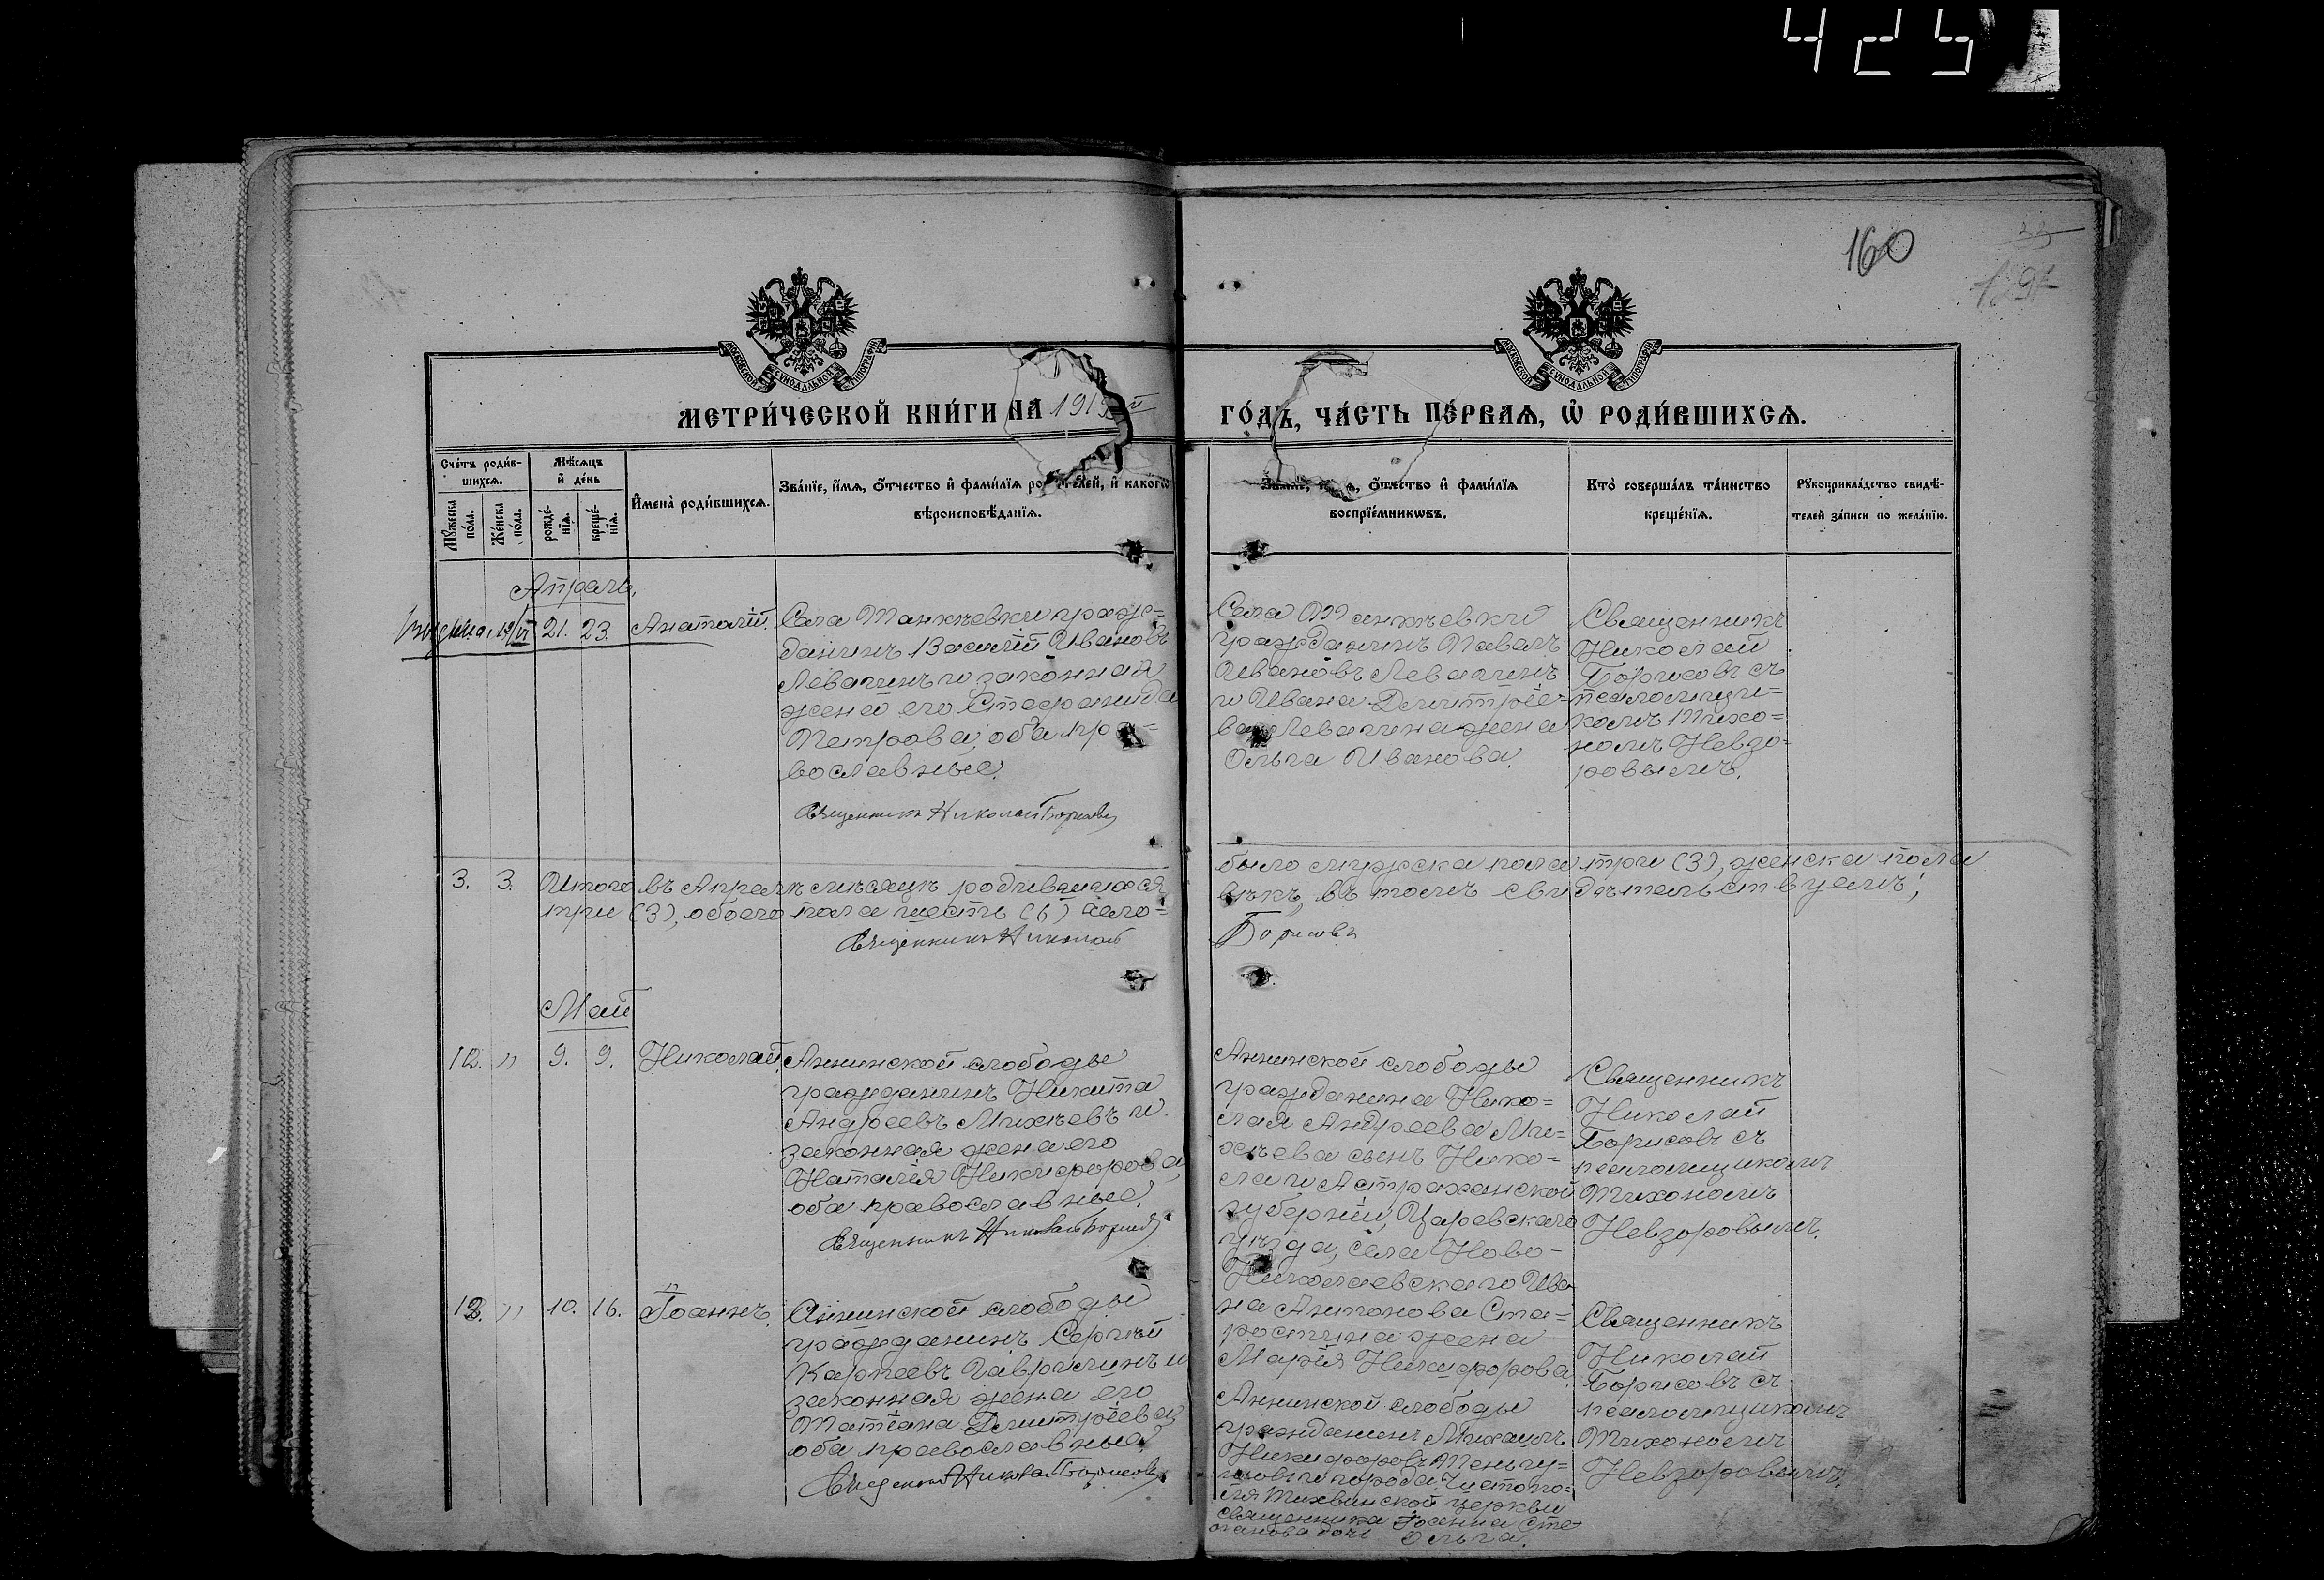 425
160
МОСКОВСКОЙ СУНОДАЛЬНОЙ ТИПОГРАФІИ
МОСКОВСКОЙ СУНОДАЛЬНОЙ ТИПОГРАФІИ
МЕТРИ́ЧЕСКОЙ КНИ́ГИ НА 191 й
ГО́ДЪ, ЧА́СТЬ ПЕ́РВАѦ, Ѡ҆ РОДИ́ВШИХСѦ.
Сче́тъ роди́в-
шихсѧ.
Мꙋжеска по́ла.
Же́нска по́ла.
Мѣсѧцъ
и҆ де́нь
рожде́-
нїѧ.
креще́-
нїѧ.
И҆мена̀ роди́вшихсѧ.
Зва́нїе, и҆́мѧ, ѻ҆́тчество и҆ фами́лїѧ родителей, и҆ какогѡ
вѣроисповѣ́данїѧ.
Зва́нїе, и҆́мѧ, ѻ҆́тчество и҆ фами́лїѧ
воспрїе́мникѡвъ.
Кто̀ соверша́лъ та́инство
креще́нїѧ.
Рꙋкоприкла́дство свидѣ́-
телей за́писи по жела́нїю.
Апрѣль.
21. 23. Анатолій.
Села Танкѣевки граж=
данинъ Василій Ивановъ
Левагинъ и законная
жена его Стефанида
Петрова, оба пра=
вославные.
Священникъ Николай Борисовъ
Села Танкѣевки
гражданинъ Павелъ
Ивановъ Левагинъ
и Ивана Димитріе=
ва Левагина жена
Ольга Иванова.
Священникъ
Николай
Борисовъ съ
псаломщи=
комъ Тихо=
номъ Невзо=
ровымъ.
3. 3. Итого въ Апрѣлѣ мѣсяцѣ родившихся было мужска пола три (3), женска пола
три (3), обоего пола шесть (6) чело= вѣкъ, въ томъ свидѣтельствуемъ:
Священникъ Николай Борисовъ
Май
12. " 9. 9. Николай.
Аннинской слободы
гражданинъ Никита
Андреевъ Михѣевъ и
законная жена его
Наталія Никифорова,
оба православные.
Священникъ Николай Борисовъ
Аннинской слободы
гражданина Нико=
лая Андреева Ми=
хѣева сынъ Нико=
лай и Астраханской
губерніи, Царевскаго
уѣзда, села Ново-
Николаевскаго Ива
на Антонова Ста=
ростина жена
Марія Никифорова.
Священникъ
Николай
Борисовъ съ
псаломщикомъ
Тихономъ
Невзоровымъ.
13. " 10. 16. Іоаннъ.
Аннинской слободы
гражданинъ Сергѣй
Карпеевъ Гаврилинъ и
законная жена его
Татіана Димитріева,
оба православные.
Священникъ Николай Борисовъ
Аннинской слободы
гражданинъ Михаилъ
Никифоровъ
и города Чистопо=
ля Тихвинской церкви
священника Іоанна Сте
фанова дочь Ольга.
Священникъ
Николай
Борисовъ съ
псаломщикомъ
Тихономъ
Невзоровымъ.